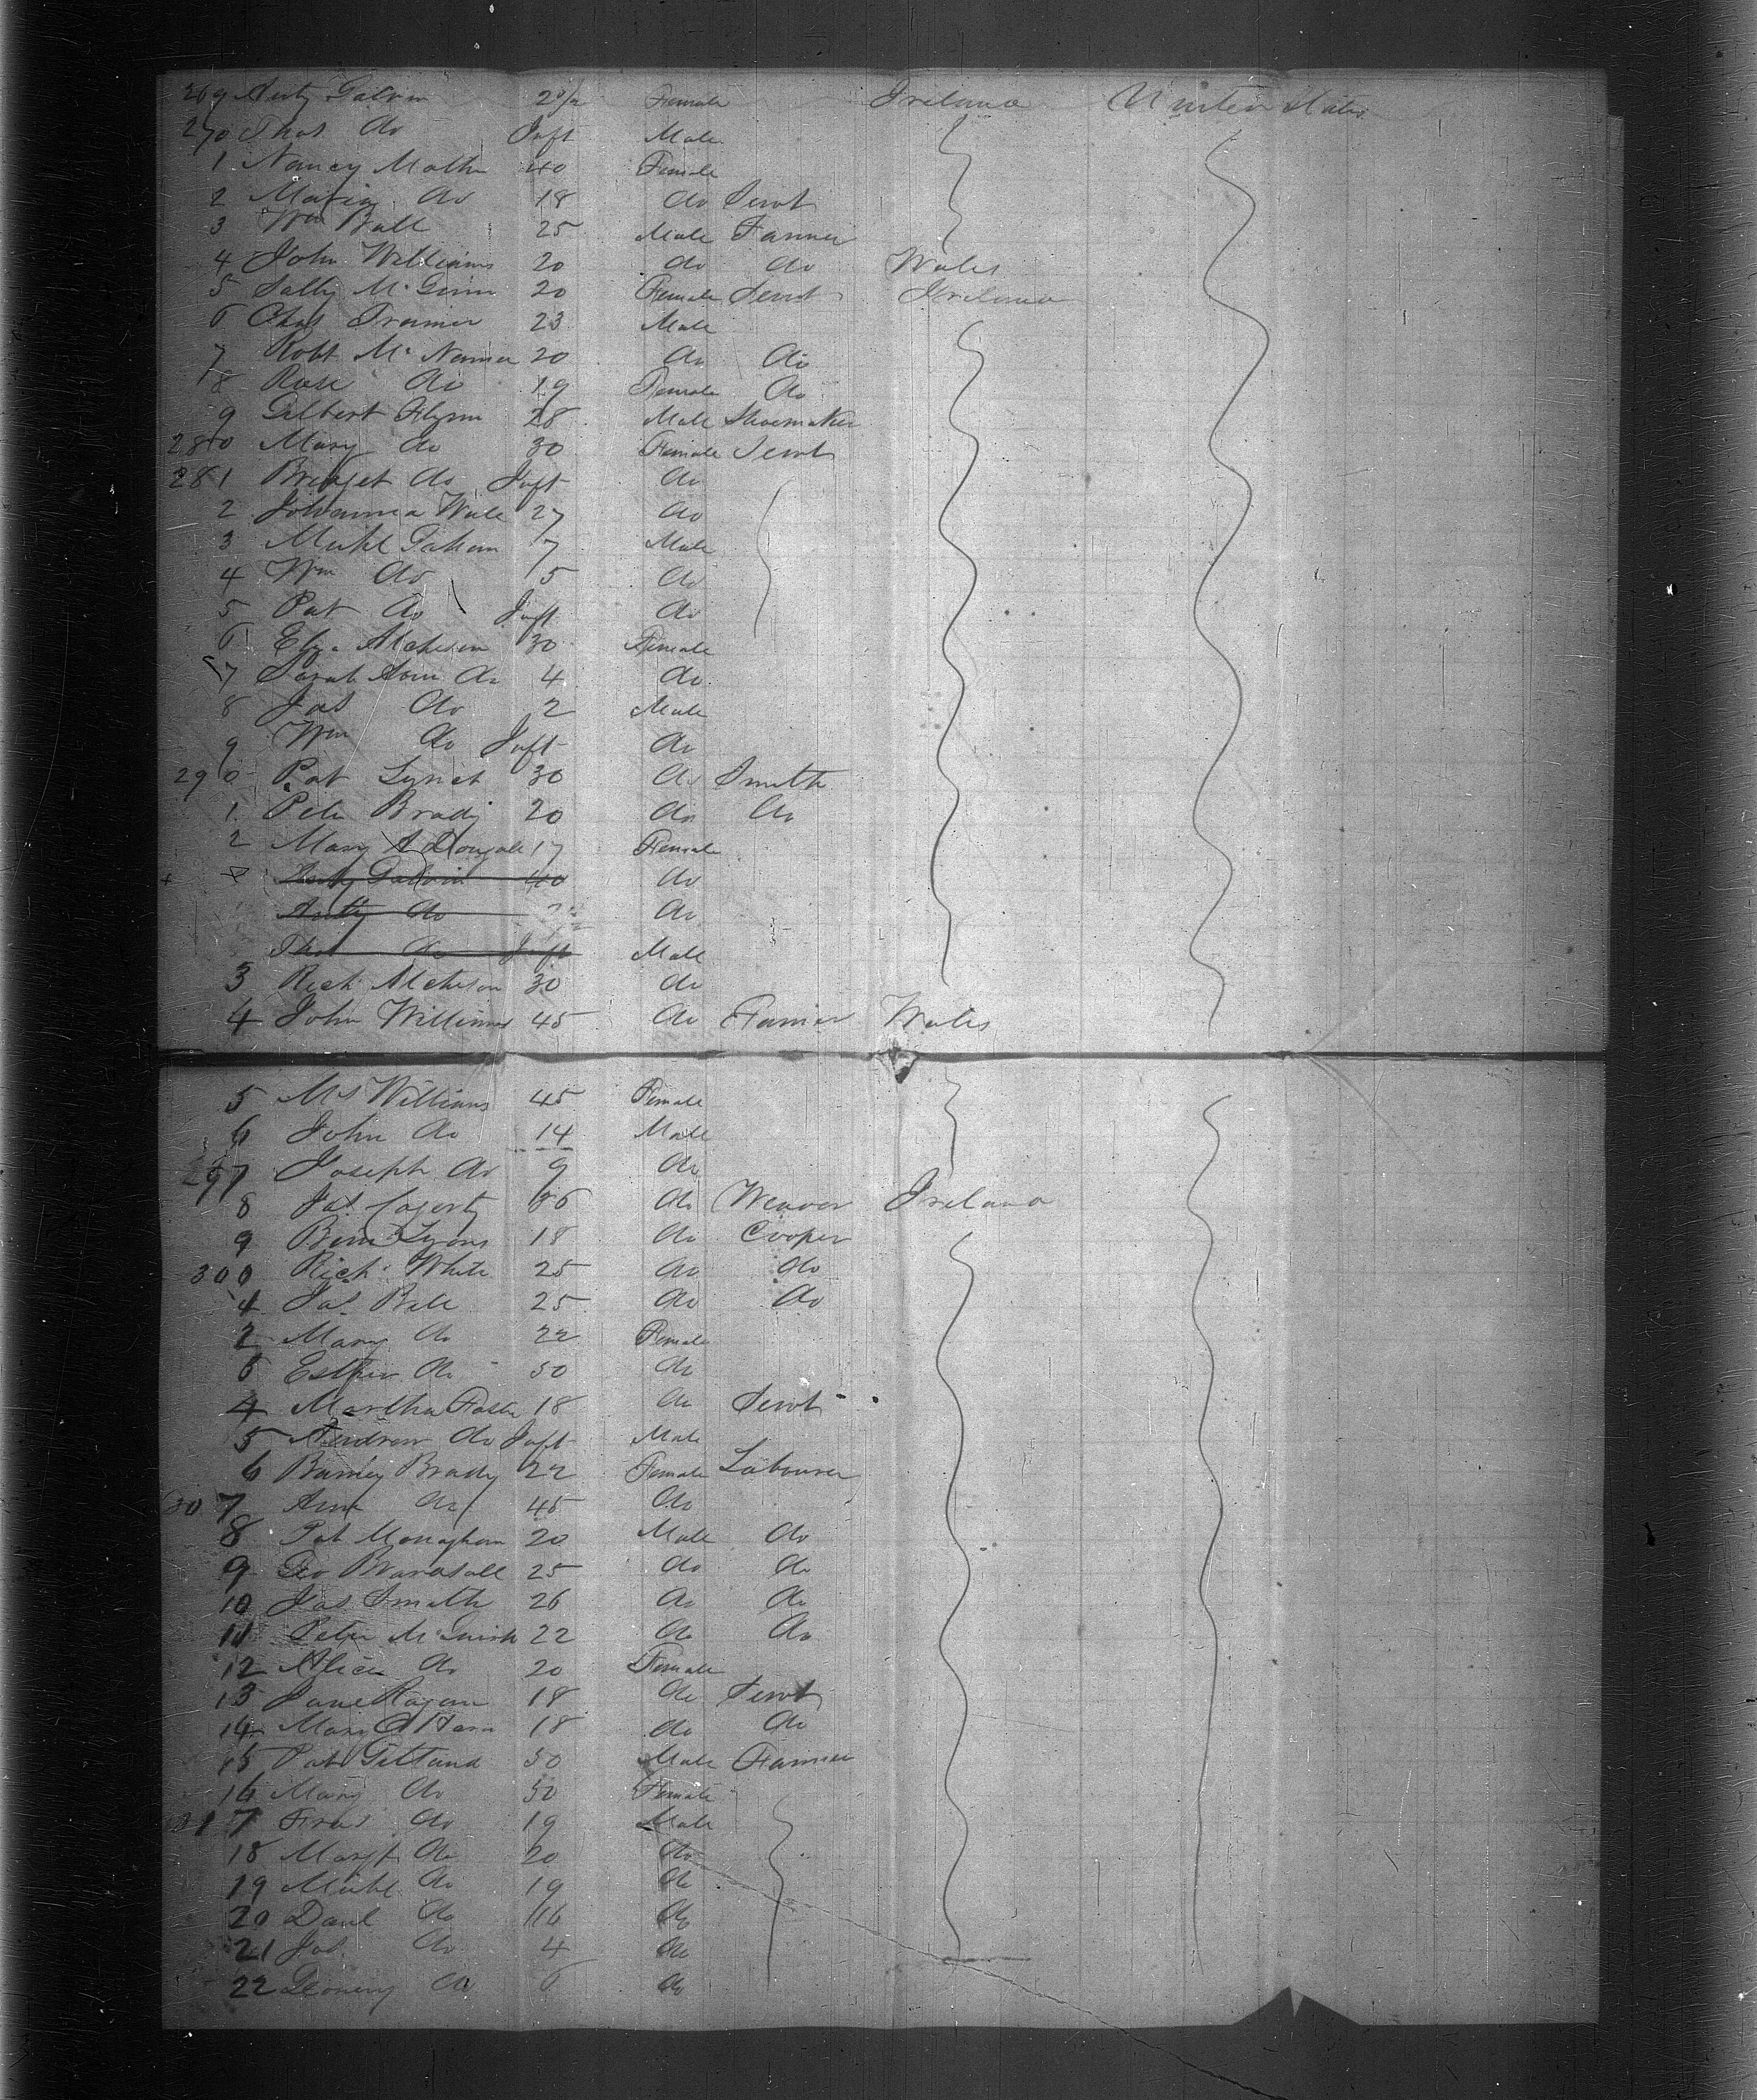 269 Anty Galvin 2 6/12 Female Ireland United States
270 Thos do Inft Male
1 Nancy Mathe 40 Female
2 Maria do 18 do Servt
3 Wm Ball 25 Male Farmer
4 John Williams 20 do do Wales
5 Sally McGinn 20 Female Servt Ireland
6 Chas 23 Male
7 Robt McNamer 20 do do
8 Rose do 19 Female do
9 Gilbert Flynn 28 Male Shoemaker
280 Mary do 30 Female Servt
281 Bridget do Inft do
2 Johanna 27 do
3 Michl 7 Male
4 Wm do 5 do
5 Pat do Inft do
6 Eliza Atcheson 30 Female
7 Sarah Ann do 4 do
8 Jas do 2 Male
9 Wm do Inft do
290 Pat Lynch 30 do Smith
1 Peter Brady 20 do do
2 Mary A Dougall 17 Female
Galvin 40 do
Anty do do
Thos do Inft Male
3 Rich Atcheson 30 do
4 John Williams 45 do Farmer Wales
5 Mrs Williams 45 Female
6 John do 14 Male
297 Joseph do 9 do
8 Jas Cogerty 36 do Weaver Ireland
9 Lyons 18 do Cooper
300 Rich White 25 do do
1 Jas Bell 25 do do
2 Mary do 22 Female
3 Esther do 50 do
4 Martha Foster 18 do Servt
5 Andrew do Inft Male
6 Barney Brady 22 Female Labourer
307 Ann do 45 do
8 Pat Monaghan 20 Male do
9 Geo 25 do do
10 Jas Smith 26 do do
11 Peter 22 do do
12 Alice do 20 Female
13 Jane Ragan 18 do Servt
14 Mary 18 do do
15 Pat 50 Male Farmer
16 Mary do 50 Female
317 Fras do 19 Male
18 Margt do 20 do
19 Michl do 19 do
20 Danl do 16 do
21 do 4 do
22 do 6 do